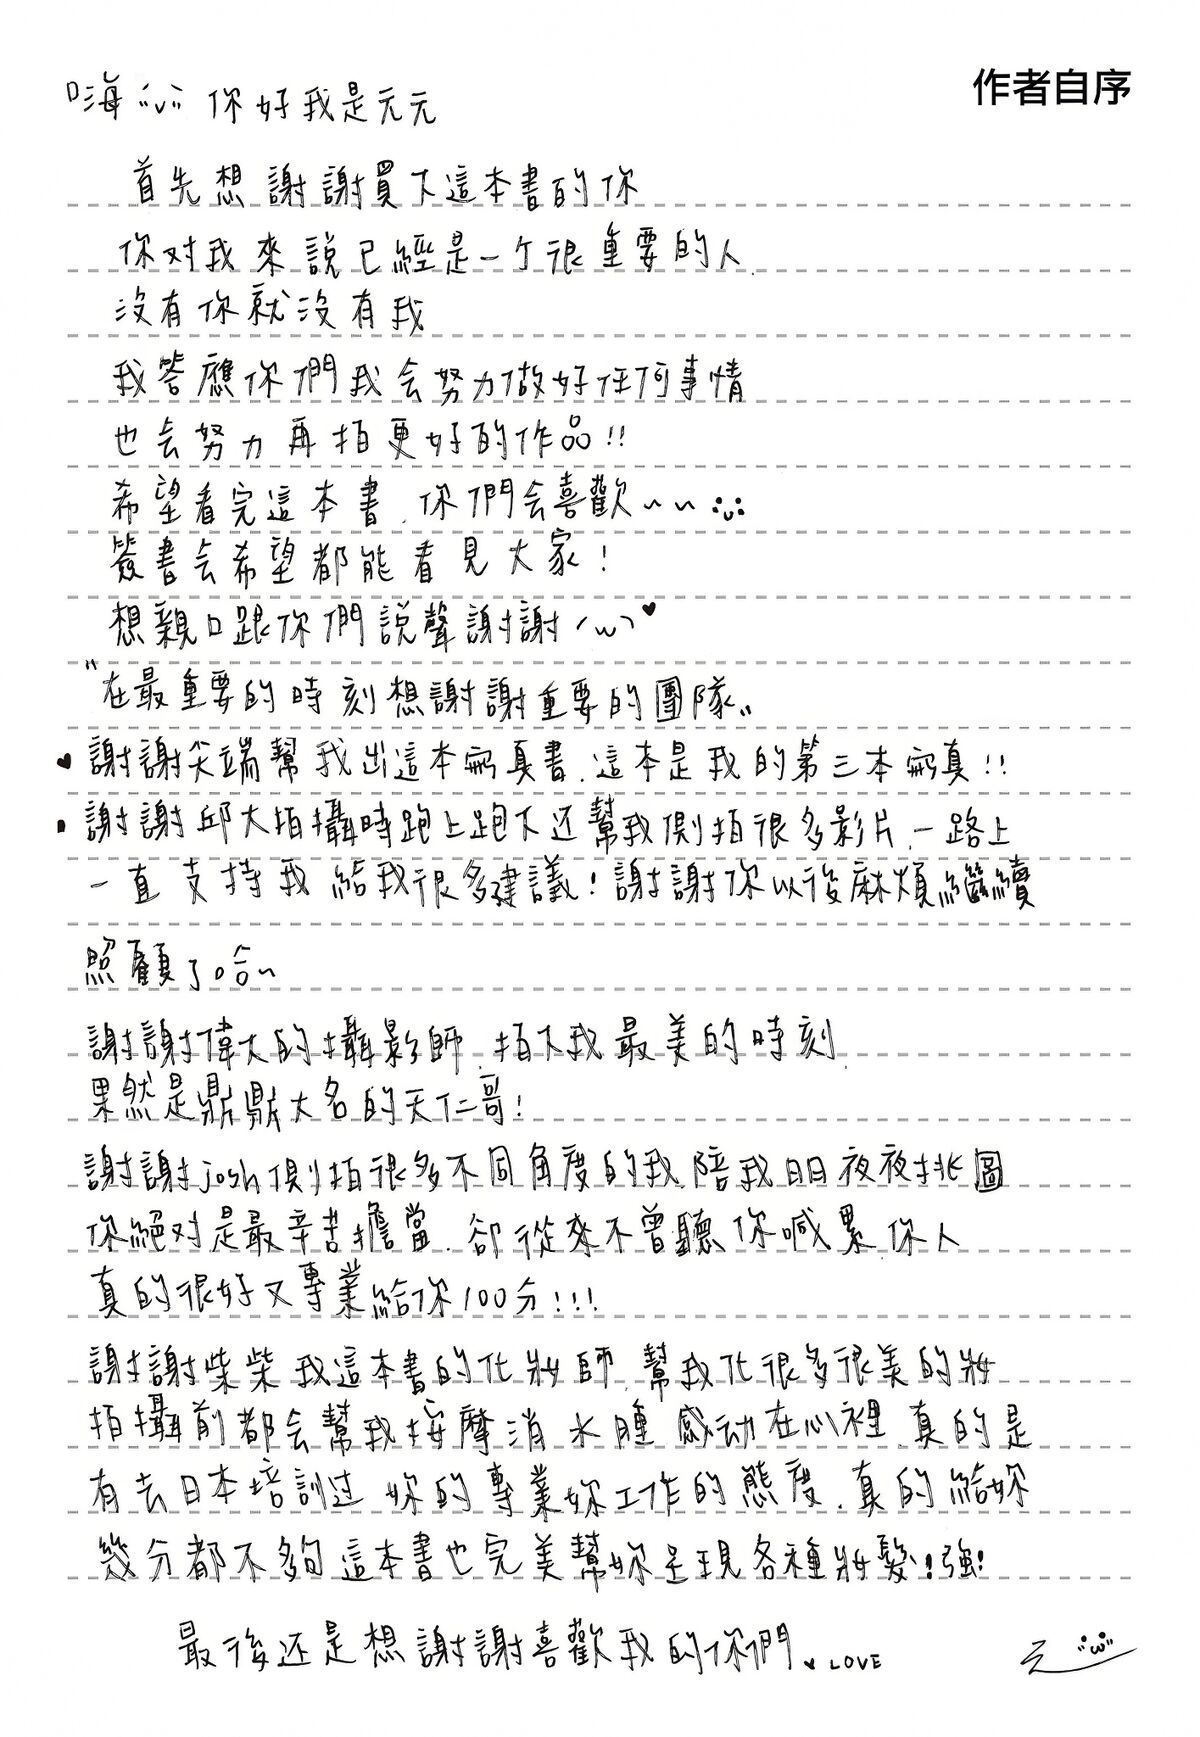 作者自序
嗨 "v" 你好我是元元
首先想謝謝買下這本書的你
你对我來說已經是一个很重要的人
沒有你就沒有我
我答應你們我会努力做好任何事情
也会努力再拍更好的作品!!
希望看完這本書,你們会喜歡~~
簽書会希望都能看見大家!
想親口跟你們說聲謝謝 ♥
"在最重要的時刻想謝謝重要的團隊"
♥ 謝謝尖端幫我出這本寫真書,這本是我的第三本寫真!!
謝謝邱大拍攝時跑上跑下还幫我側拍很多影片,一路上
一直支持我給我很多建議!謝謝你以後麻煩繼續
照顧了哈~
謝謝偉大的攝影師,拍下我最美的時刻
果然是鼎鼎大名的天仁哥!
謝謝josh側拍很多不同角度的我,陪我日日夜夜挑圖
你絕对是最辛苦擔當,卻從來不曾聽你喊累,你人
真的很好又專業給你100分!!!
謝謝柴柴我這本書的化妝師,幫我化很多很美的妝
拍攝前都会幫我按摩消水腫感动在心裡,真的是
有去日本培訓过,妳的專業妳工作的態度,真的給妳
幾分都不夠這本書也完美幫妳呈現各種妝髮!強!
最後还是想謝謝喜歡我的你們 ♥ LOVE
元 "w"